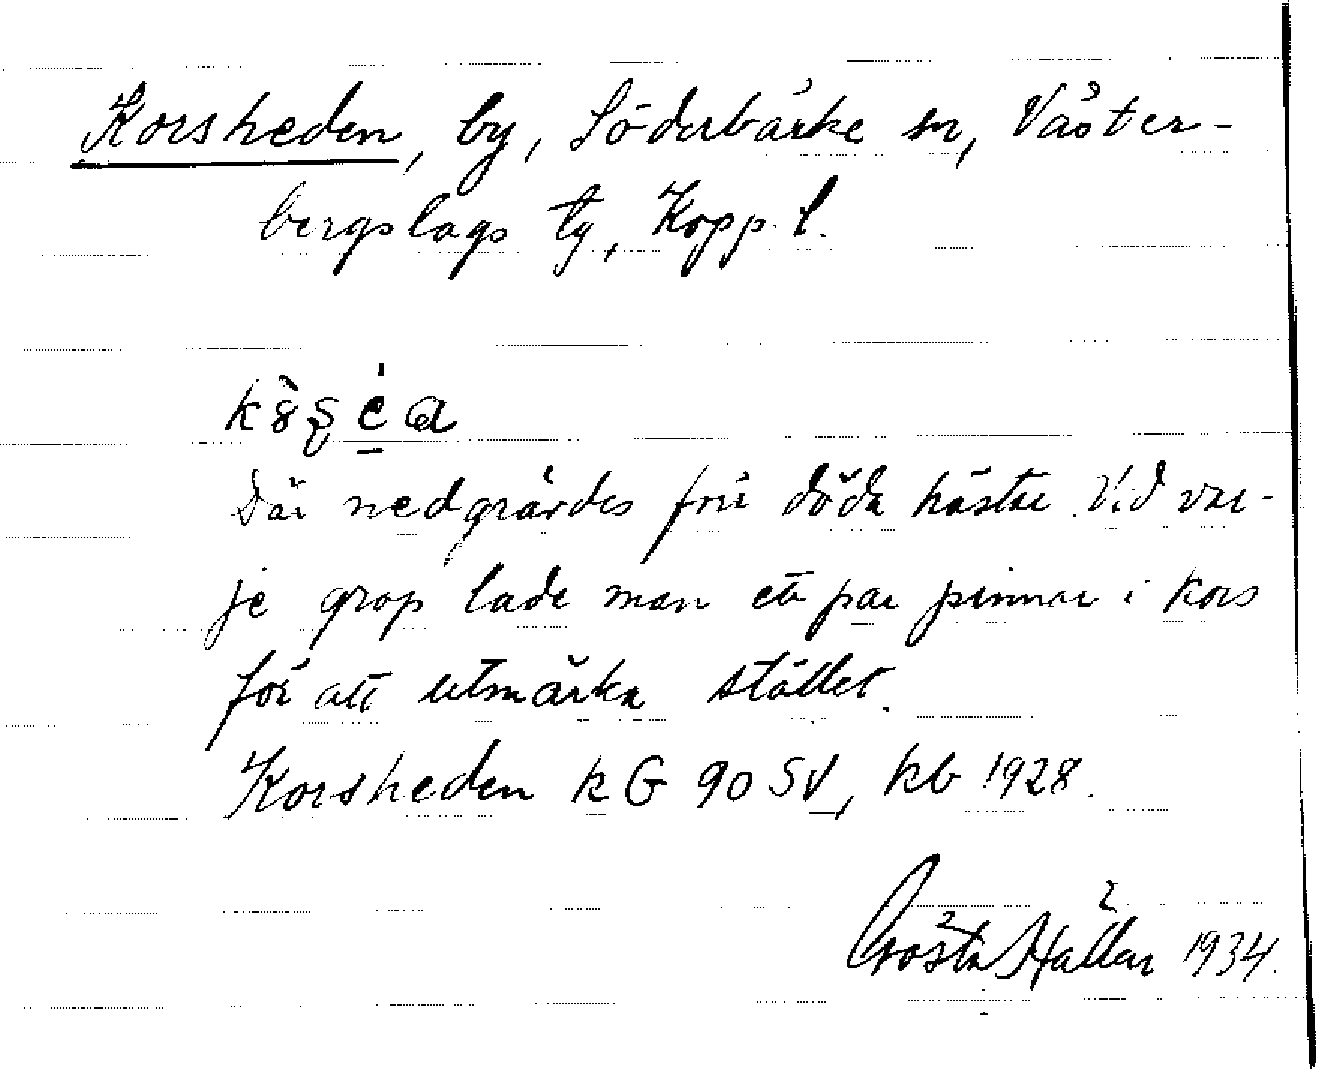 Korsheden, by, Söderbärke sn, Väster-
bergslags tg, Kopp. l.
Där nedgrävdes förr döda hästar. Vid var-
je grop lade man ett par pinnar i kors
för att utmärka stället.
Korsheden k G 90 SV, kb 1928.
Gösta Hallar 1934.